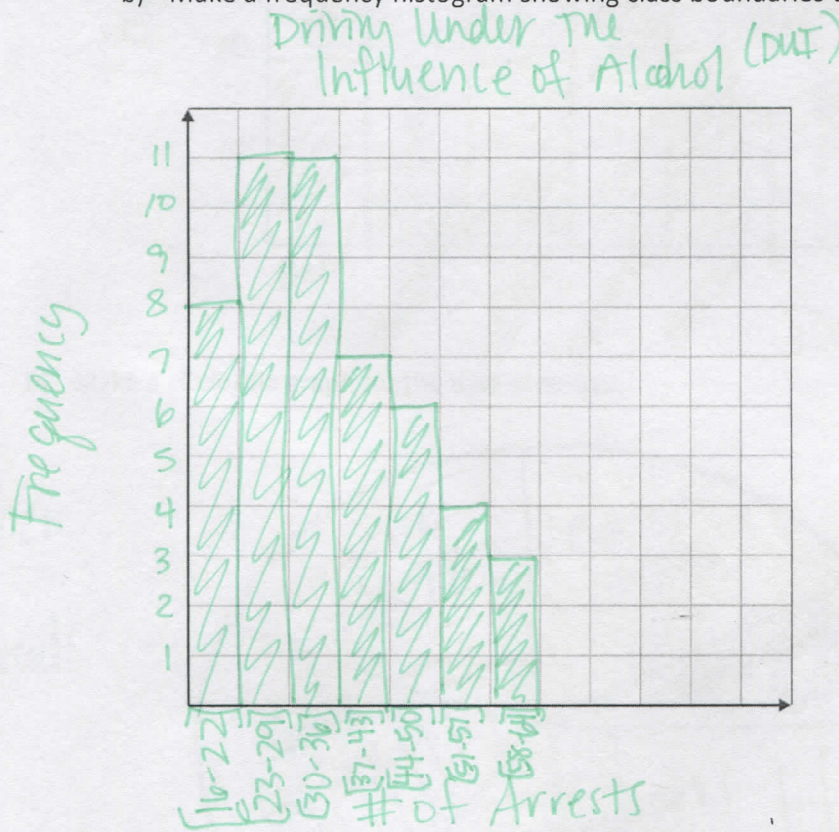 b) Make a frequency histogram showing class boundaries
Driving Under The
Influence of Alcohol (DUI)
11
10
9
8
7
6
5
4
3
2
1
Frequency
[16-22]
[23-29]
[30-36]
[37-43]
[44-50]
[51-57]
[58-64]
# of Arrests